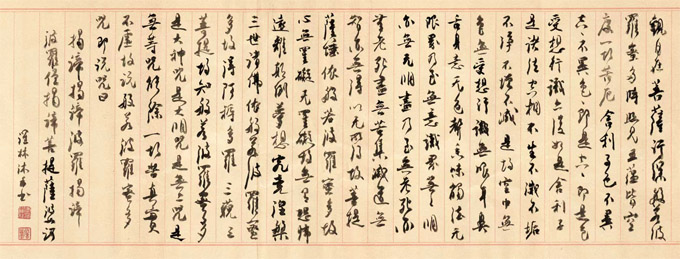 觀自在菩薩行深般若波
羅蜜多時照見五蘊皆空
度一切苦厄舍利子色不異
空空不異色色即是空空即是色
受想行識亦復如是舍利子
是諸法空相不生不滅不垢
不淨不增不減是故空中無
色無受想行識無眼耳鼻
舌身意无色聲香味觸法无
眼界乃至無意識界無無明
亦無無明盡乃至無老死亦
無老死盡無苦集滅道無
智亦無得以无所得故菩提
薩埵依般若波羅蜜多故
心無罣礙无罣礙故無有恐怖
遠離顛倒夢想究竟涅槃
三世諸佛依般若波羅蜜
多故得阿耨多羅三藐三
菩提故知般若波羅蜜多
是大神咒是大明咒是無上咒是
無等等咒能除一切苦真實
不虛故說般若波羅蜜多
咒即說咒曰
揭諦揭諦波羅揭諦
波羅僧揭諦菩提薩婆訶
林沐手書